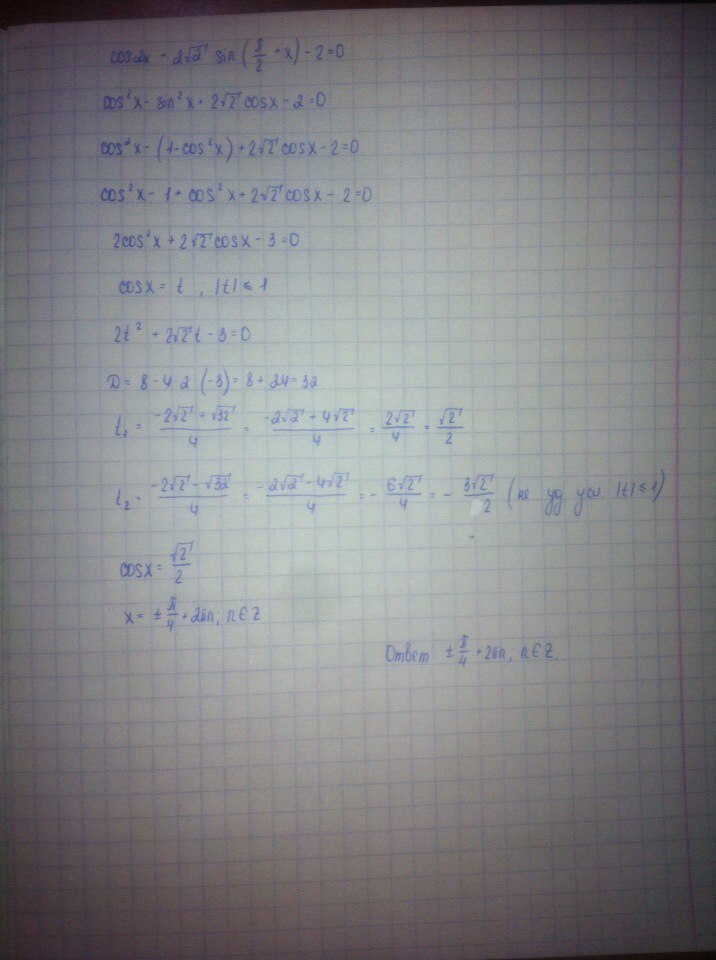 cos2x + 2√2 sin(π/2 + x) - 2 = 0
cos²x - sin²x + 2√2 cosx - 2 = 0
cos²x - (1 - cos²x) + 2√2 cosx - 2 = 0
cos²x - 1 + cos²x + 2√2 cosx - 2 = 0
2cos²x + 2√2 cosx - 3 = 0
cosx = t , |t| ≤ 1
2t² + 2√2 t - 3 = 0
D = 8 - 4·2·(-3) = 8 + 24 = 32
t₁ = (-2√2 + √32)/4 = (-2√2 + 4√2)/4 = 2√2/4 = √2/2
t₂ = (-2√2 - √32)/4 = (-2√2 - 4√2)/4 = - 6√2/4 = - 3√2/2 (не уд. усл. |t| ≤ 1)
cosx = √2/2
x = ± π/4 + 2πn, n ∈ Z
Ответ ± π/4 + 2πn, n ∈ Z.